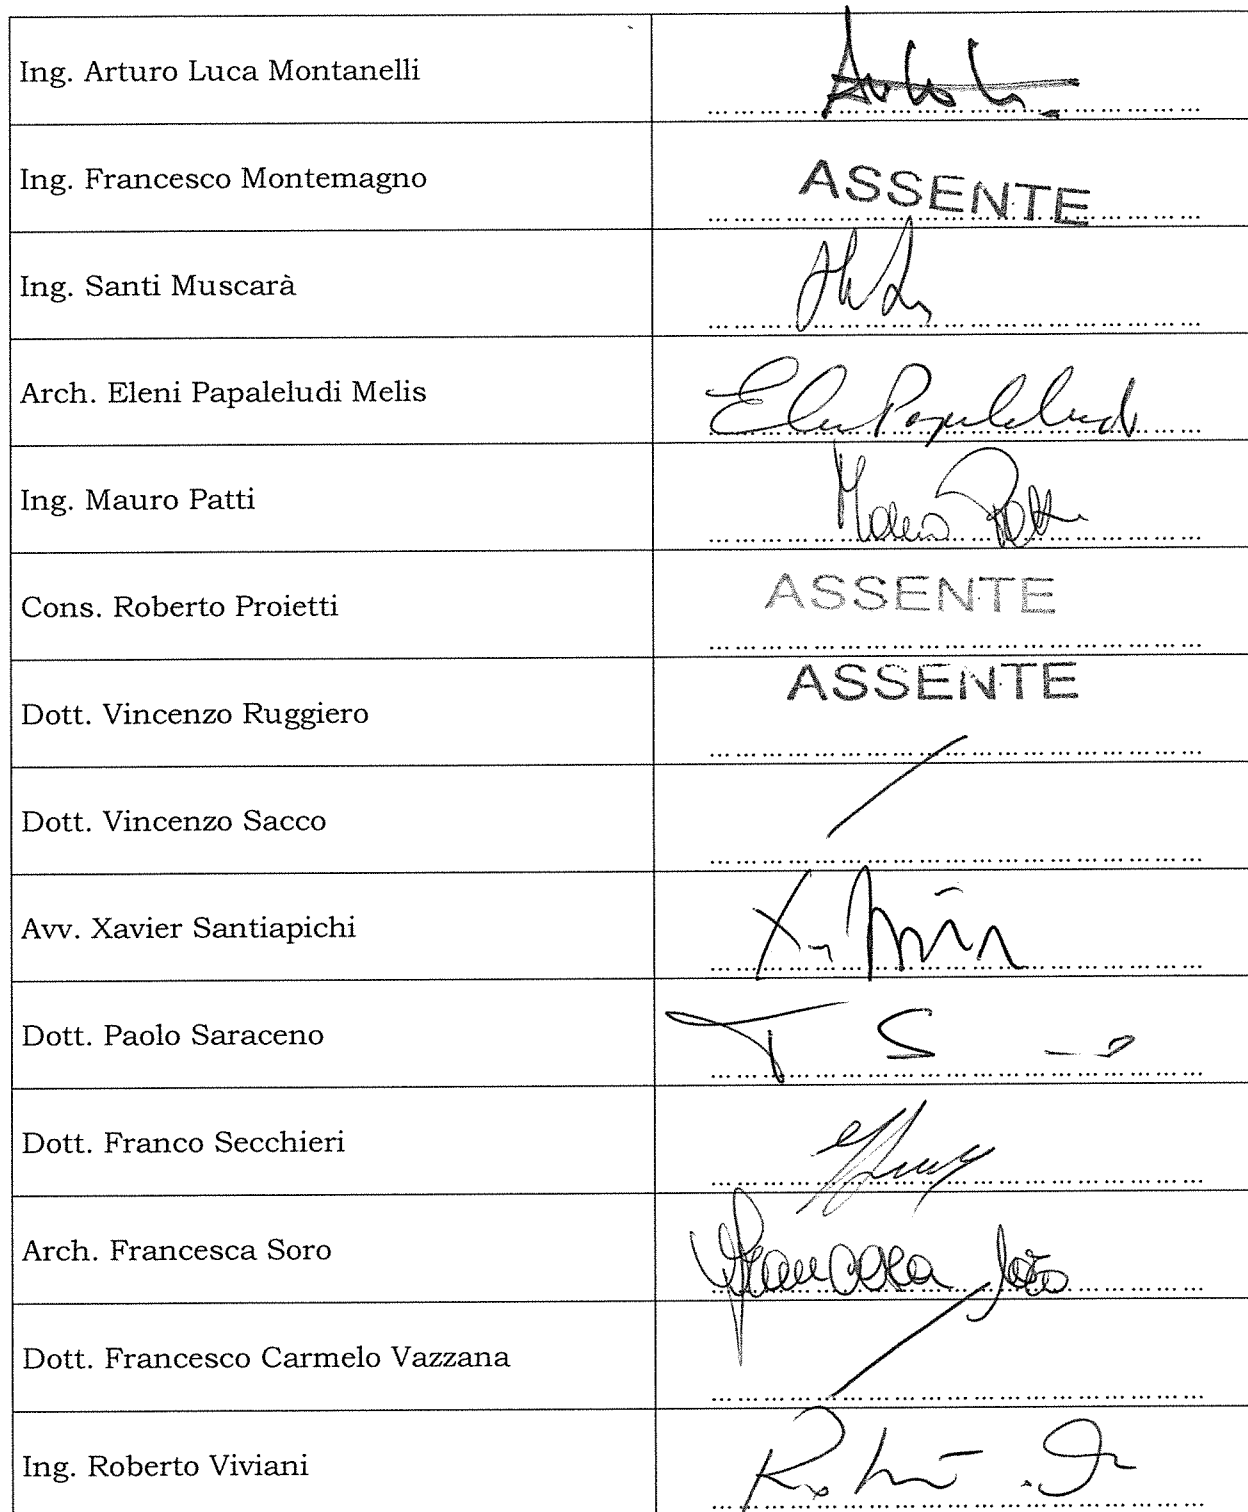 Ing. Arturo Luca Montanelli
Ing. Francesco Montemagno ASSENTE
Ing. Santi Muscarà
Arch. Eleni Papaleludi Melis
Ing. Mauro Patti Mauro Patti
Cons. Roberto Proietti ASSENTE
Dott. Vincenzo Ruggiero ASSENTE
Dott. Vincenzo Sacco
Avv. Xavier Santiapichi
Dott. Paolo Saraceno
Dott. Franco Secchieri
Arch. Francesca Soro Francesca Soro
Dott. Francesco Carmelo Vazzana
Ing. Roberto Viviani